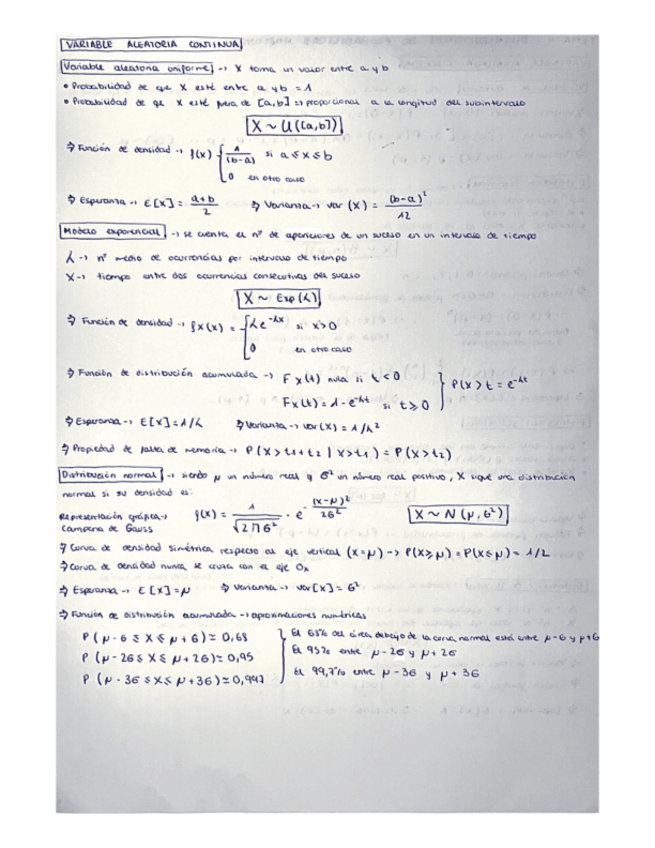 VARIABLE ALEATORIA CONTINUA
Variable aleatoria uniforme → X toma un valor entre a y b
• Probabilidad de que X esté entre a y b = 1
• Probabilidad de qe X esté fuera de [a,b] => proporcional a la longitud del subintervalo
X ~ U([a,b])
=> Función de densidad → f(x) = { 1/(b-a) si a ≤ x ≤ b
0 en otro caso
=> Esperanza → E[X] = a+b/2 => Varianza → var (X) = (b-a)²/12
Modelo exponencial → se cuenta el nº de apariciones de un suceso en un intervalo de tiempo
λ → nº medio de ocurrencias por intervalo de tiempo
X → tiempo entre dos ocurrencias consecutivas del suceso
X ~ Exp(λ)
=> Función de densidad → fx(x) = { λe^-λx si x>0
0 en otro caso
=> Función de distribución acumulada → Fx(t) nula si t<0
Fx(t) = 1 - e^-λt si t ≥ 0 } P(X > t = e^-λt
=> Esperanza → E[X] = 1/λ => Varianza → var(X) = 1/λ²
=> Propiedad de falta de memoria → P(X > t1+t2 | X > t1) = P(X > t2)
Distribución normal → siendo μ un número real y σ² un número real positivo, X sigue una distribución
normal si su densidad es:
Representación gráfica →
Campana de Gauss
f(x) = 1/√2πσ² · e^-(x-μ)²/2σ² X ~ N(μ, σ²)
=> Curva de densidad simétrica respecto al eje vertical (x=μ) → P(X≥μ) = P(X≤μ) = 1/2
=> Curva de densidad nunca se cruza con el eje Ox
=> Esperanza → E[X] = μ => Varianza → var[X] = σ²
=> Función de distribución acumulada → aproximaciones numéricas
P(μ-σ ≤ X ≤ μ+σ) ≃ 0,68 } El 68% del área debajo de la curva normal está entre μ-σ y μ+σ
P(μ-2σ ≤ X ≤ μ+2σ) ≃ 0,95 El 95% entre μ-2σ y μ+2σ
P(μ-3σ ≤ X ≤ μ+3σ) ≃ 0,997 El 99,7% entre μ-3σ y μ+3σ